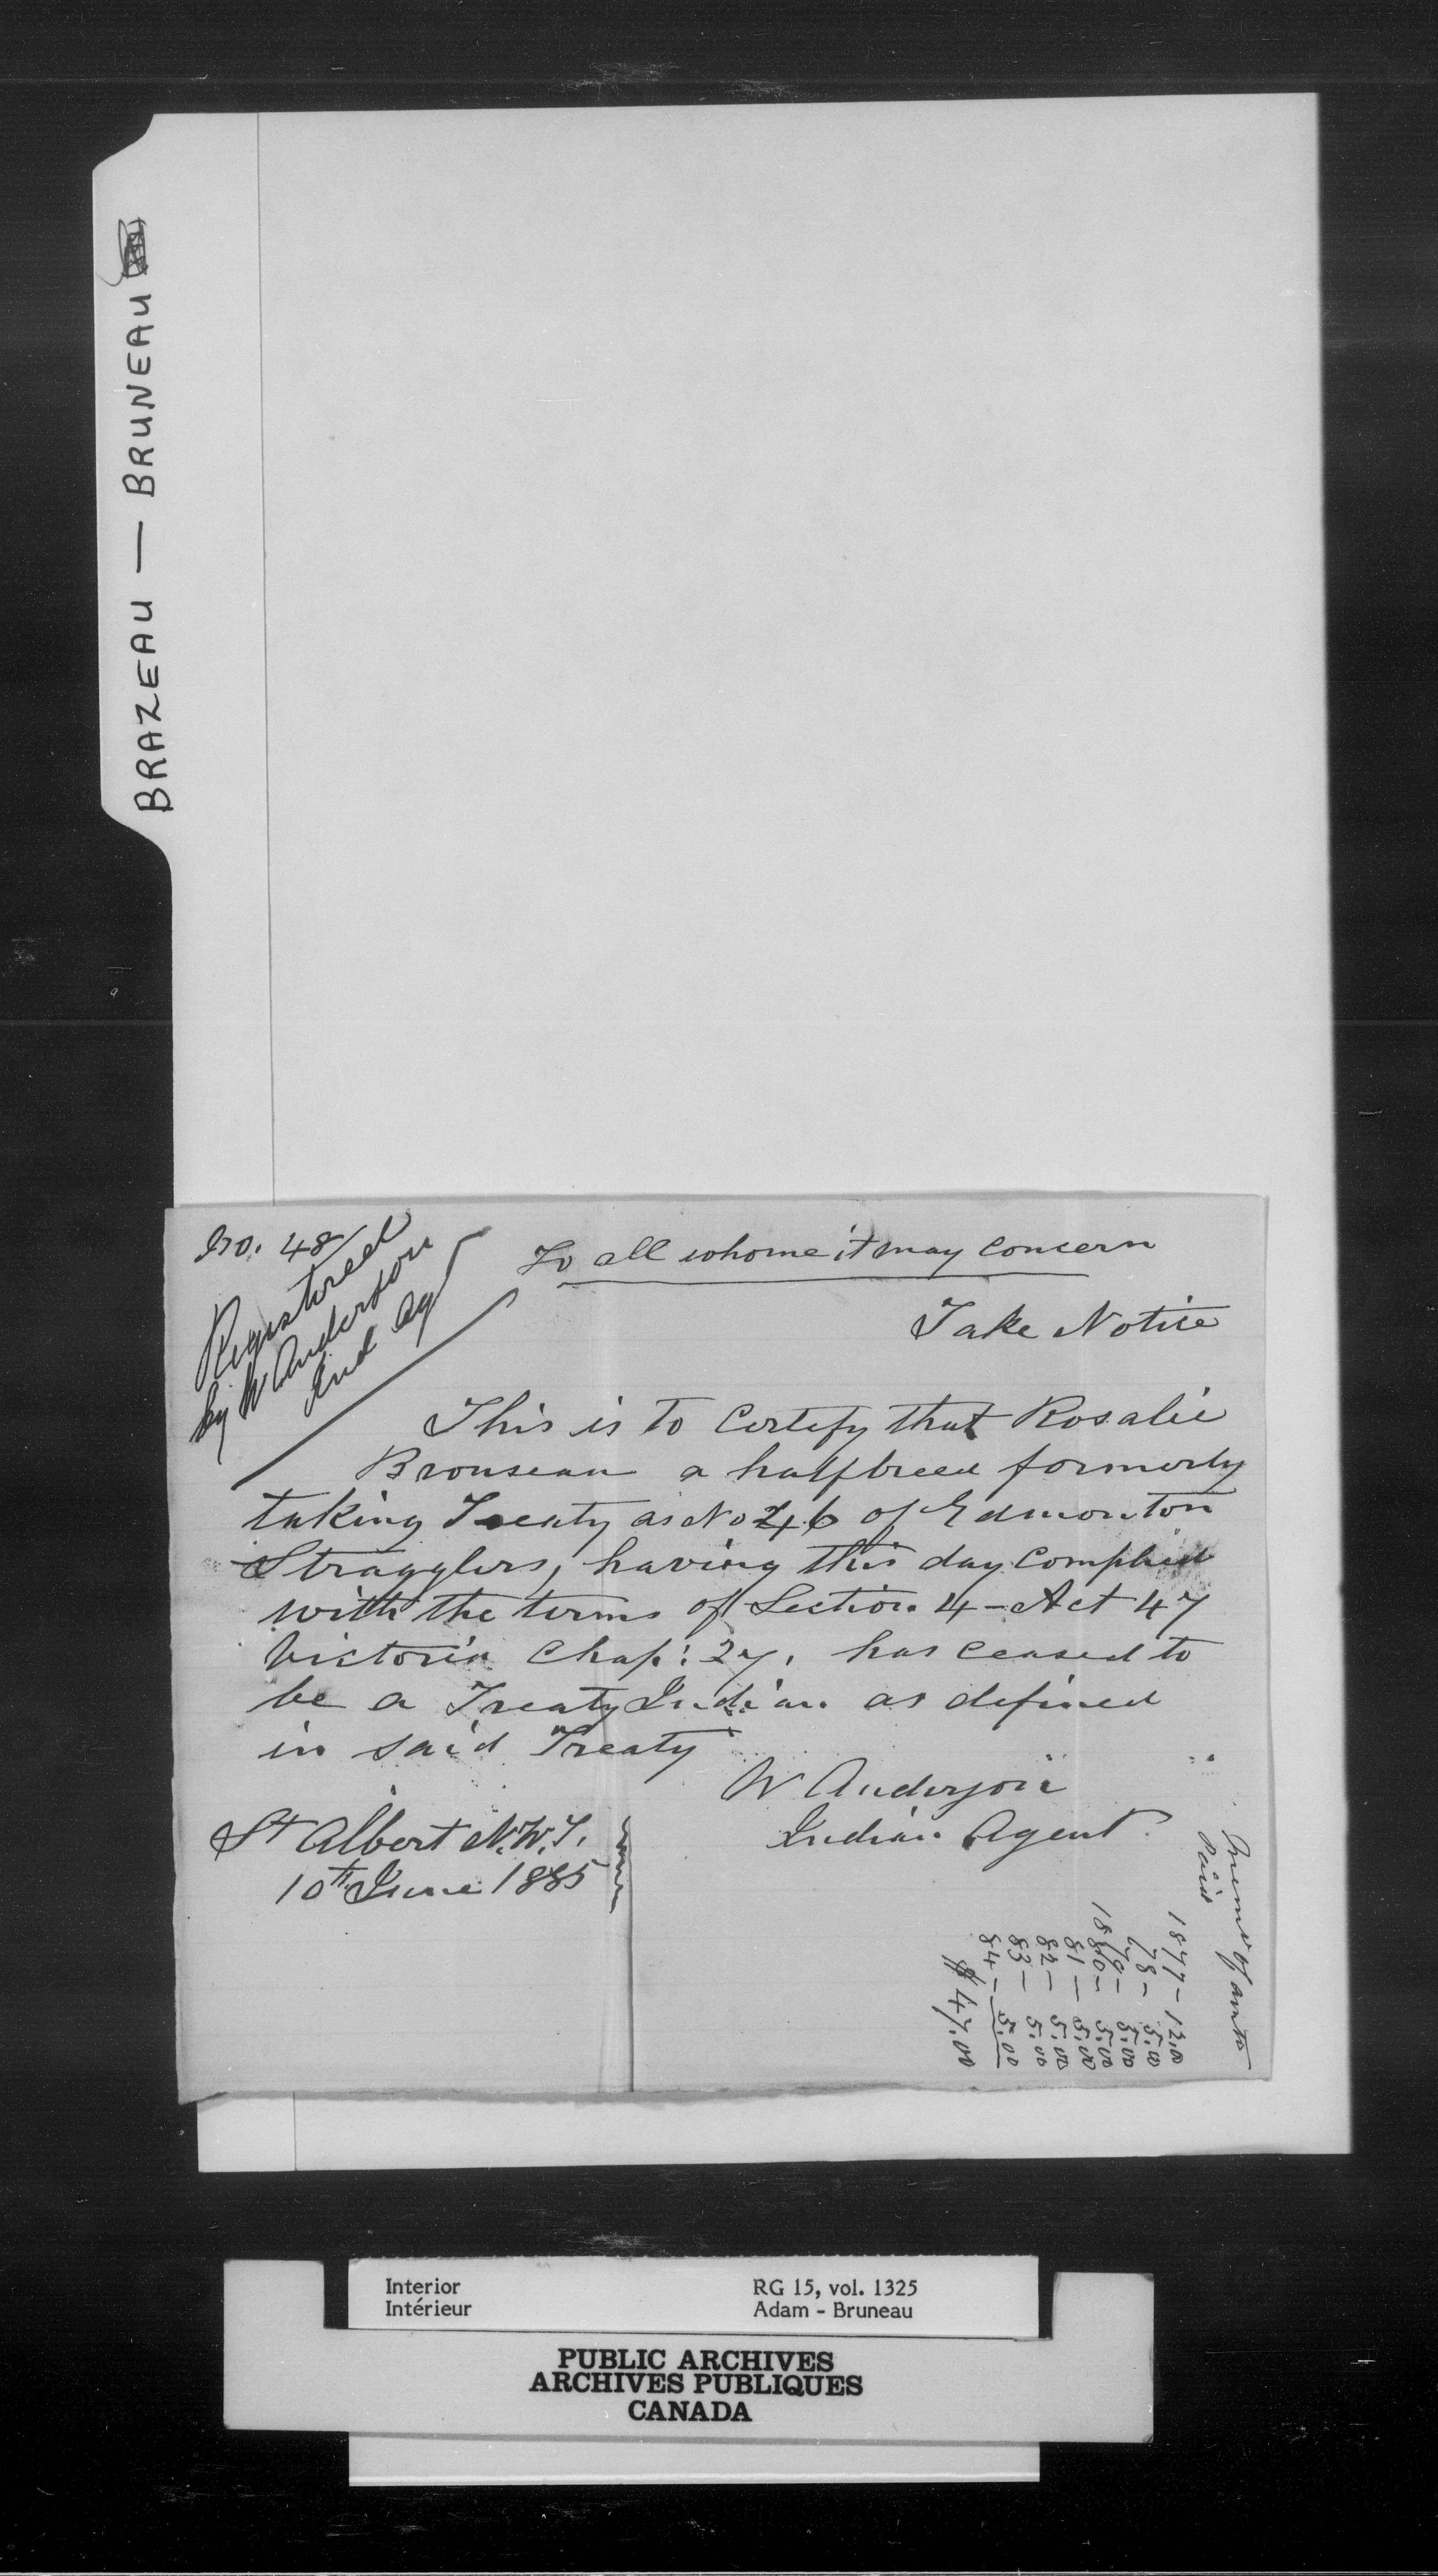 BRAZEAU — BRUNEAU
No. 48
Registered
by W Anderson
Ind Ag
To all whome it may concern
Take Notice
This is to Certify that Rosalie
Brouseau a halfbreed formerly
taking Treaty as No 46 of Edmonton
Stragglers, having this day Complied
with the terms of Section 4 - Act 47
Victoria Chap: 27, has ceased to
be a Treaty Indian as defined
in said Treaty
W Anderson
Indian Agent.
St Albert N.W.T.
10th June 1885
Memo of amts
Paid
1877 - 12.00
78 - 5.00
79 - 5.00
1880 - 5.00
81 - 5.00
82 - 5.00
83 - 5.00
84 - 5.00
$ 47.00
Interior
Intérieur
RG 15, vol. 1325
Adam - Bruneau
PUBLIC ARCHIVES
ARCHIVES PUBLIQUES
CANADA